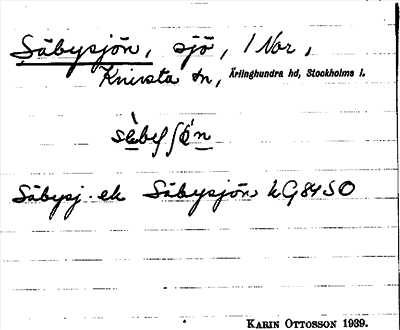 Säbysjön, sjö, i Nor,
Knivsta sn, Ärlinghundra hd, Stockholms l.
Säbysj. ek Säbysjön kG84SO
KARIN OTTOSSON 1939.